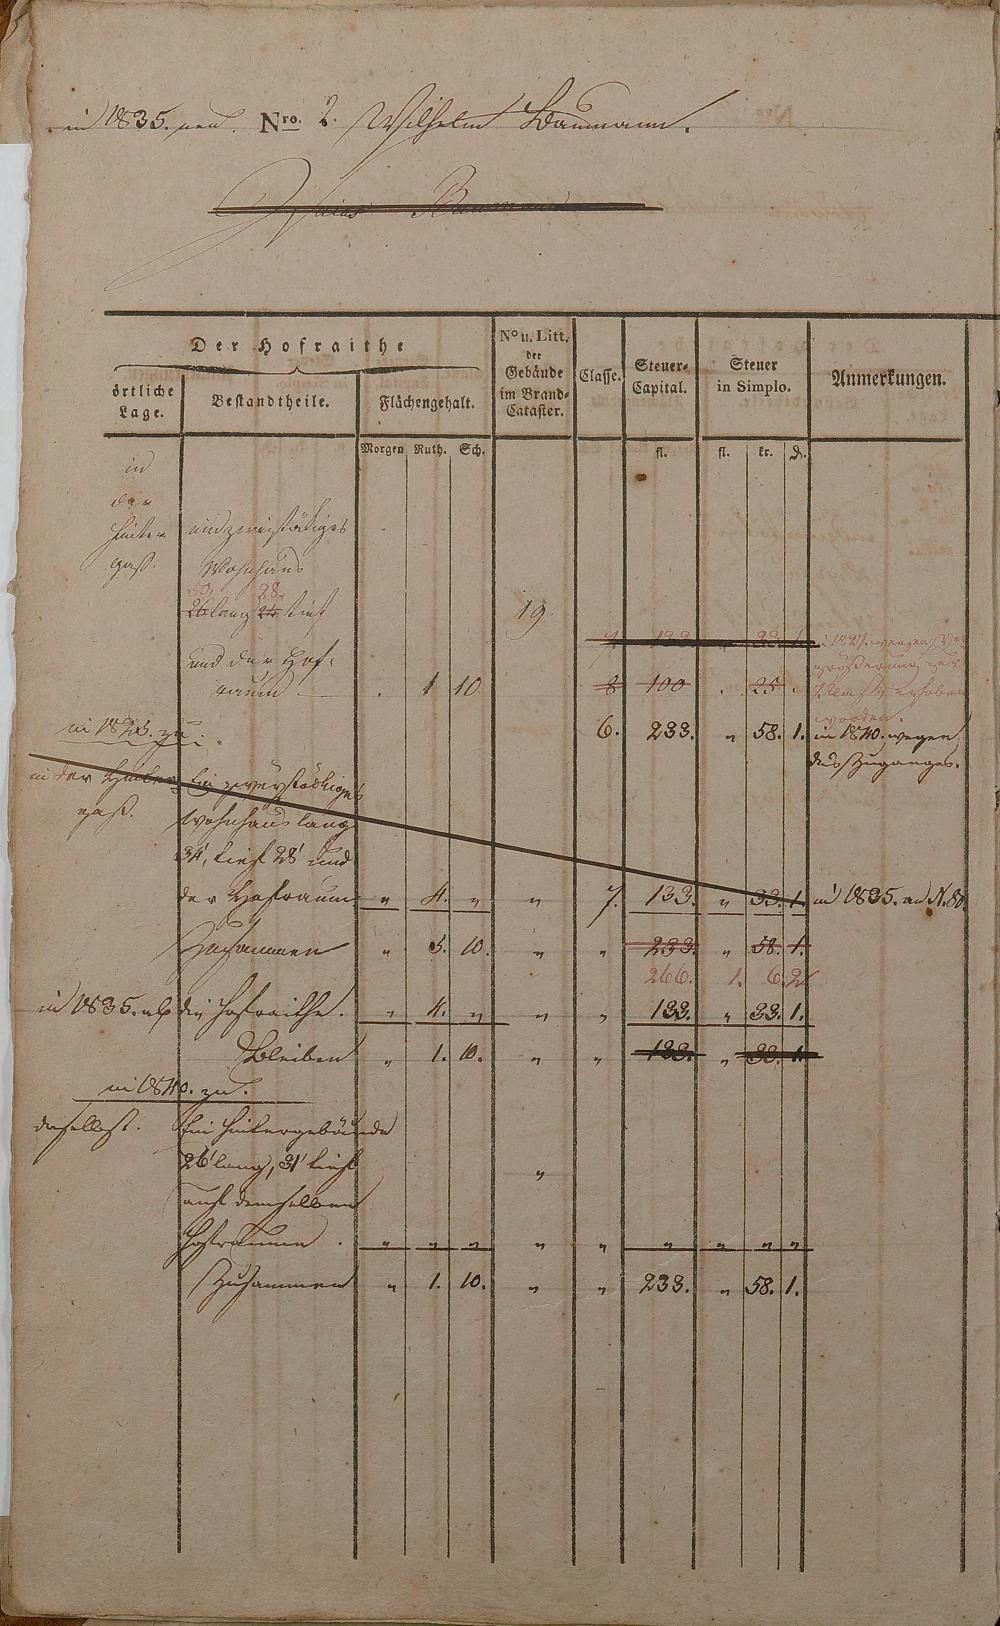 in 1835. neu. Nro. 2. Wilhelm Baumann.
Der Hofraithe
örtliche Lage.
Bestandtheile.
Flächengehalt.
No u. Litt. der Gebäude im Brand-Cataster.
Classe.
Steuer-Capital.
Steuer in Simplo.
Anmerkungen.
Morgen Ruth. Sch. fl. fl. kr. d.
in
der
hinter einzweistökiges
gaß. Wohnhaus
50. 28.
26 lang 24 tief 19.
7. 133 " 33. 1. in 1827. wegen Ver
und der Hof- größerung zur
raum . 1 10 8 100 . 25 . 7. Classe erhoben
worden.
in 1825. zu: 6. 233. " 58. 1. in 1840. wegen
des Zuganges.
in der Hinter Ein zweystöckiges
gaß. Wohnhaus lang
34', tief 28' und
der Hofraum " 4. " " 7. 133. " 33. 1. in 1835. an N. 80.
Zusammen " 5. 10. " " 233. " 58. 1.
266. 1. 6. 2.
in 1835. ab die Hofraithe. " 4. " " " 133. " 33. 1.
Bleiben " 1. 10. " " 133. " 33. 1.
in 1840. zu.
daselbst. Ein Hintergebäude
26' lang, 31' tief "
auf demselben
Hofraume . " " " " " " " " "
Zusammen " 1. 10. " " 233. " 58. 1.